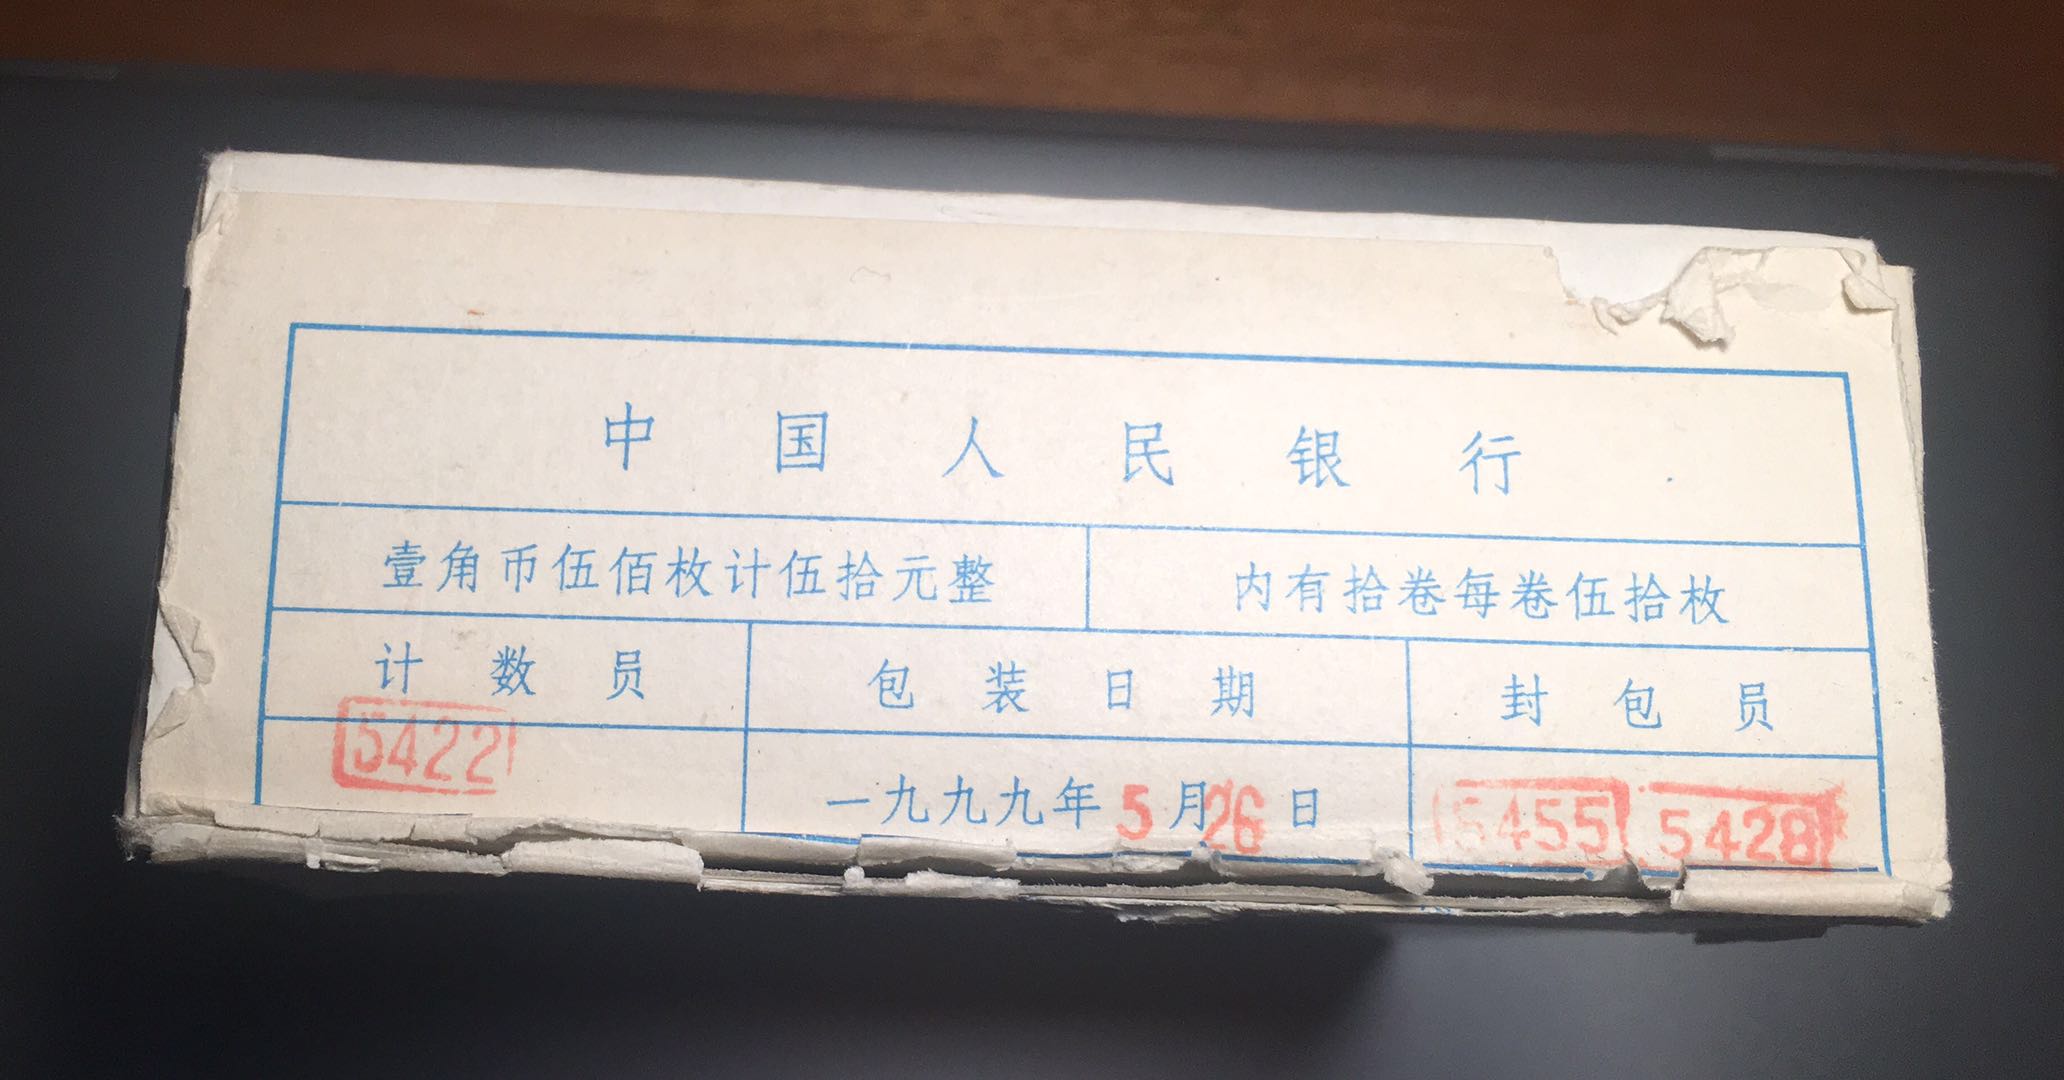 中国人民银行
壹角币伍佰枚计伍拾元整 内有拾卷每卷伍拾枚
计数员 包装日期 封包员
5422 一九九九年5月26日 5455 5428